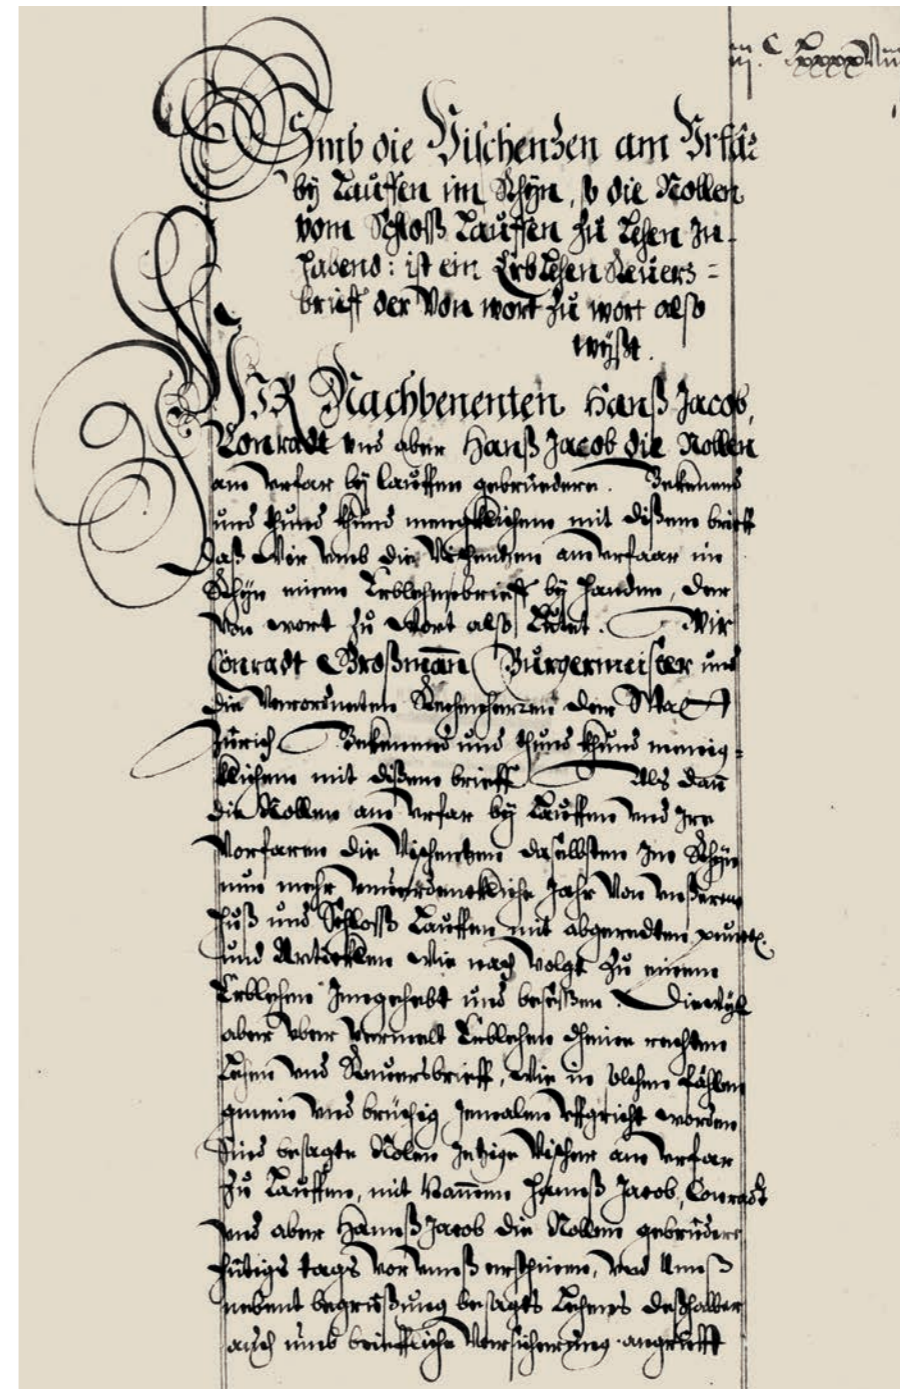 Umb die Vischenzen am Urfar
by Lauffen im Rhyn, so die Nollen
vom Schloss Lauffen zu Lehen In-
habend: ist ein Erblehen Revers-
brieff der von wort zu wort also
wyßt.
WIR Nachbenenten Hanß Jacob,
Conradt und aber Hanß Jacob die Nollen
am Urfar by Lauffen gebruedere. Bekennend
unnd thund khund mengklichem mit dißem brieff
Daß Wir umb die Vischentzen am Urfaar im
Rhyn einen Erblehensbrieff by handen, der
von wort zu wort also lutet. Wir
Conradt Großmann Burgermeister und
die Verordneten Rechenherren der Statt
Zürich Bekennend und thund khund meng-
klichem mit dißem brieff Als dann
die Nollen am Urfar by Lauffen und Ire
Vorfaren die Vischentzen daselbsten Im Rhyn
nun mehr unverdenckliche Jahr von unßerem
huß und Schloss Lauffen mit abgeredten puncten
und Artickklen wie nach volgt zu einem
Erblehen Inngehebt und beseßen. Diewyl
aber über vermelt Erblehen dheine rechten
Lehen und Reversbrieff, wie in solchen fählen
gmein und brüchig Jemalen uffgricht worden
Sind besagte Nolen Jetzige Vischer am Urfar
zu Lauffen, mit Nammen Hannß Jacob, Conradt
und aber Hannß Jacob die Nollen gebrüdere
hütigs tags vor unnß erschinen, und unnß
nebent begrüßung besagts Lehens deßhalber
auch umb brieffliche Versicherung angrüefft